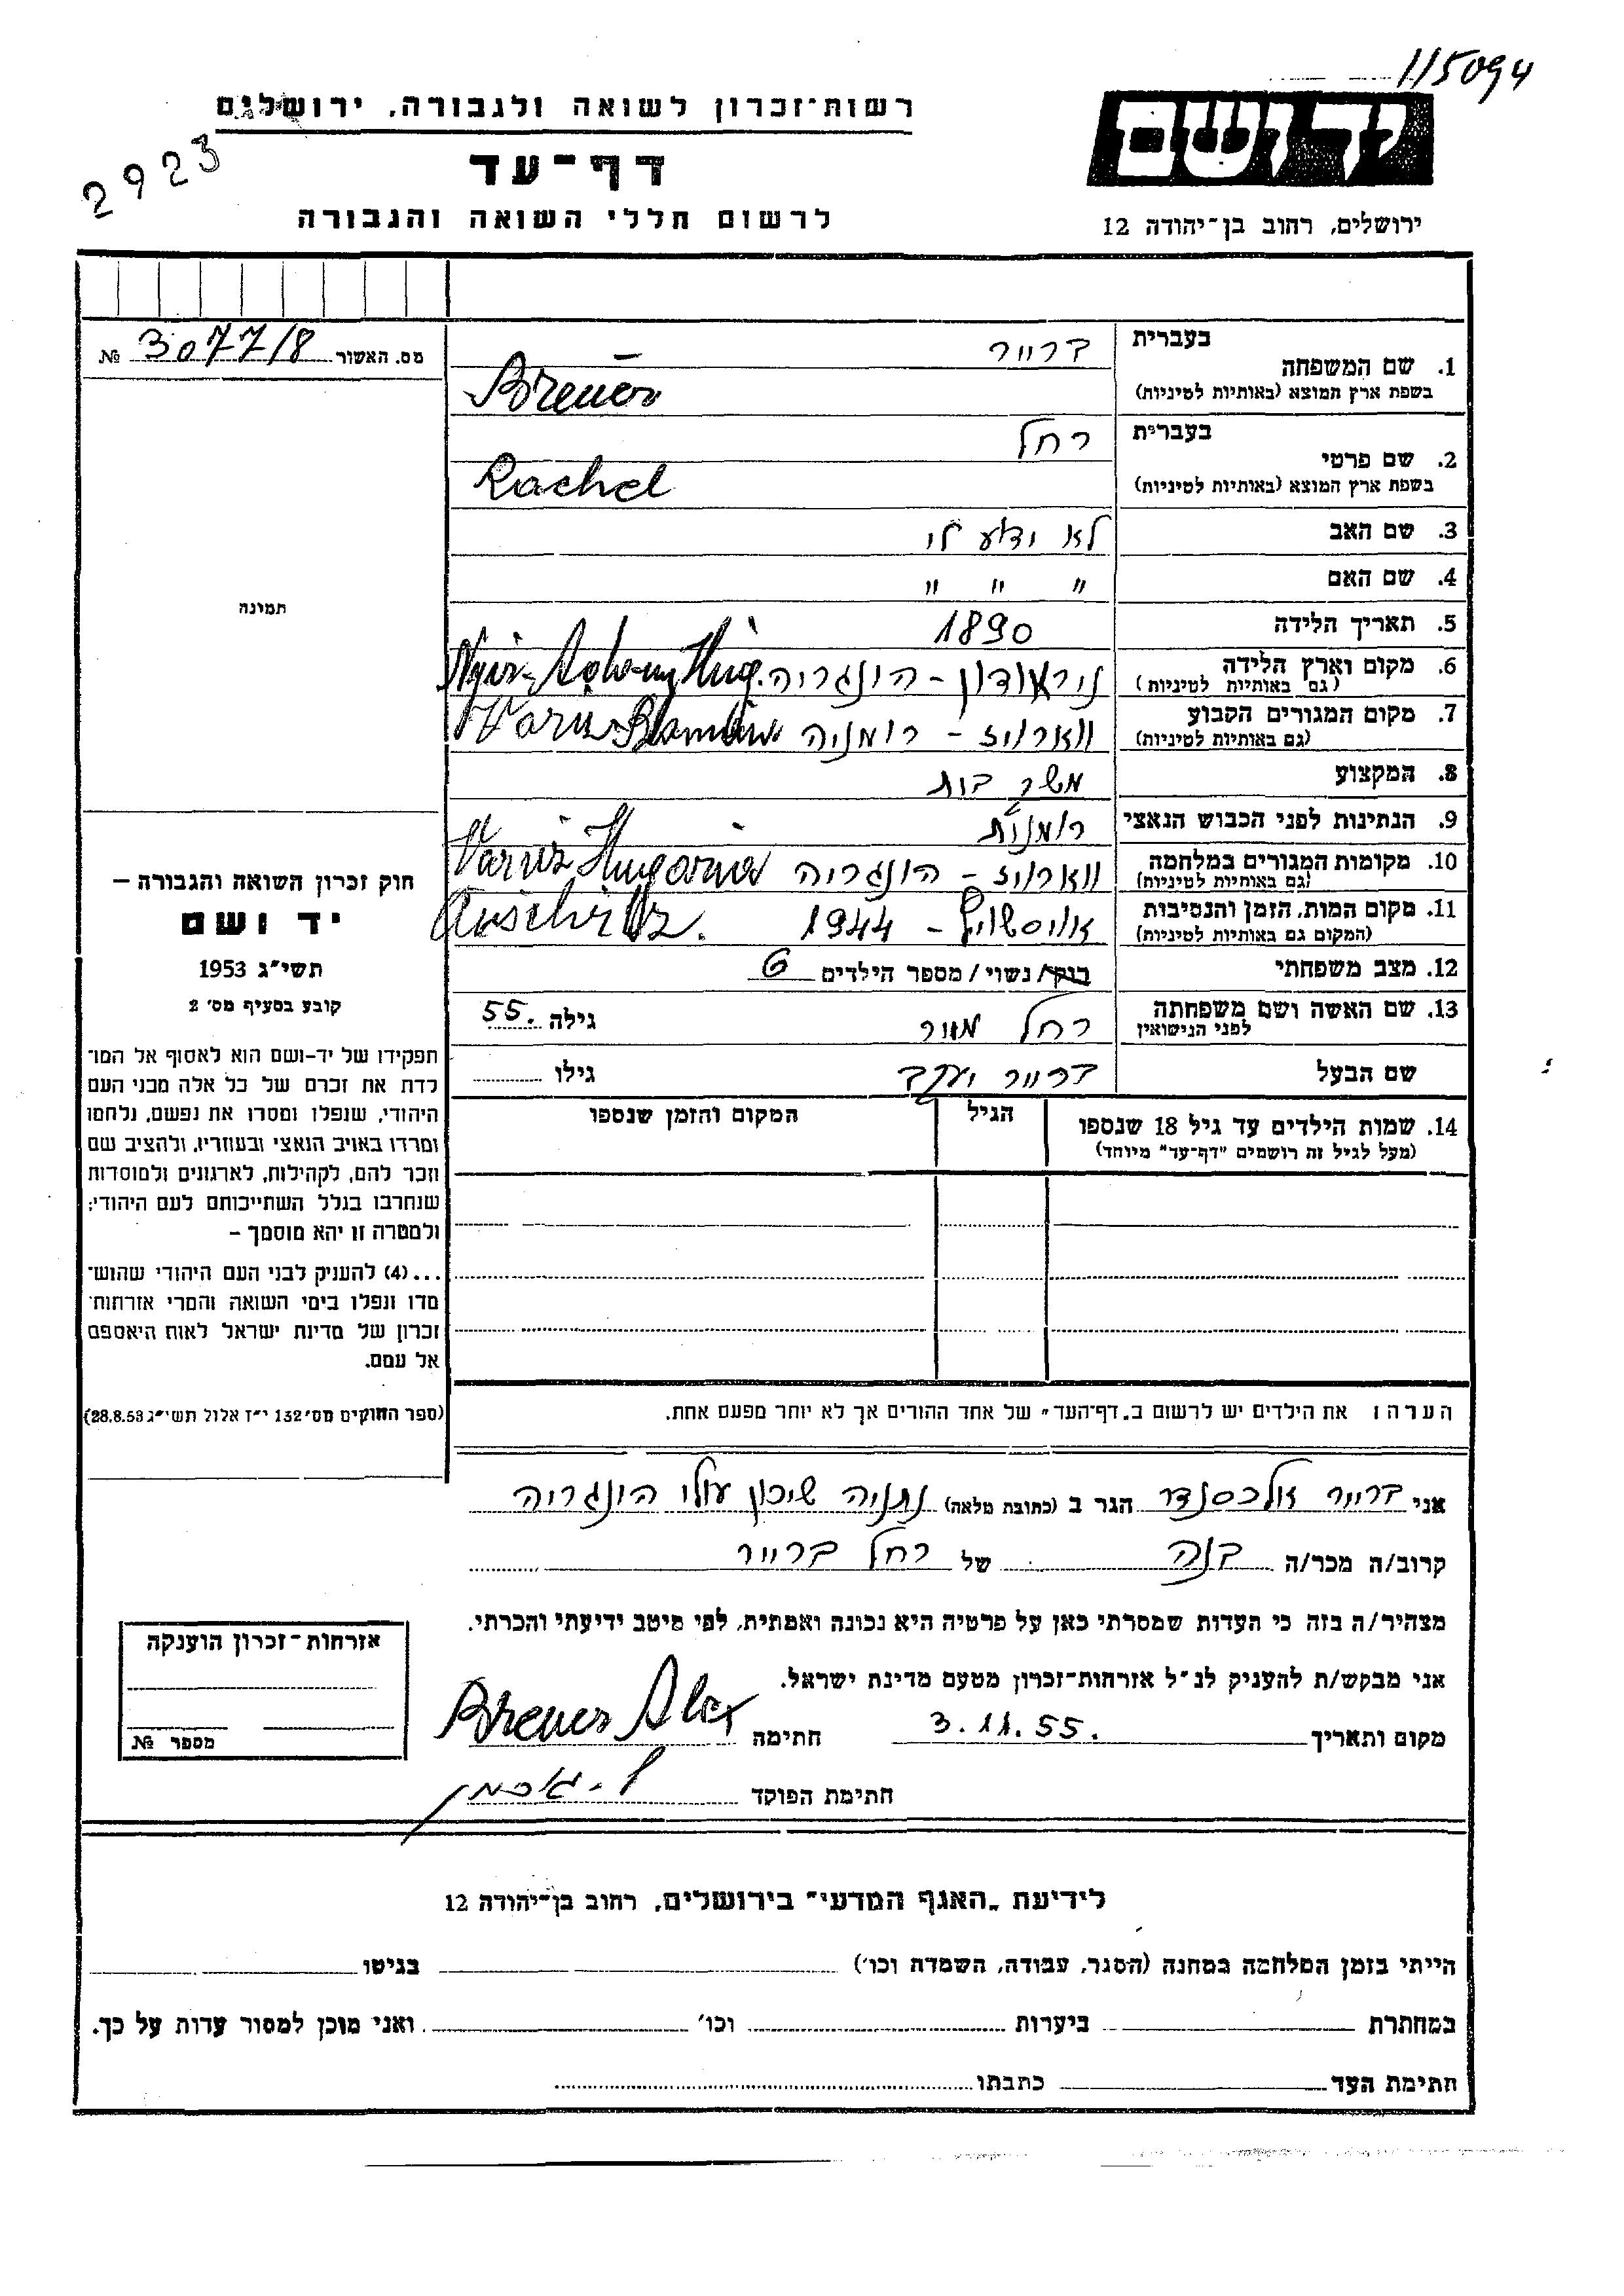 115094
רשות־זכרון לשואה ולגבורה, ירושלים
יד ושם
2923
דף־עד
לרשום חללי השואה והגבורה
ירושלים, רחוב בן־יהודה 12
מס. האשור 30771/8 №
תמונה
חוק זכרון השואה והגבורה –
יד ושם
תשי״ג 1953
קובע בסעיף מס׳ 2
תפקידו של יד-ושם הוא לאסוף אל המו־
לדת את זכרם של כל אלה מבני העם
היהודי, שנפלו ומסרו את נפשם, נלחמו
ומרדו באויב הנאצי ובעוזריו, ולהציב שם
וזכר להם, לקהילות, לארגונים ולמוסדות
שנחרבו בגלל השתייכותם לעם היהודי;
ולמטרה זו יהא מוסמך –
...(4) להעניק לבני העם היהודי שהוש־
מדו ונפלו בימי השואה והמרי אזרחות־
זכרון של מדינת ישראל לאות היאספם
אל עמם.
(ספר החוקים מס׳ 132 י״ז אלול תשי״ג 28.8.53)
בעברית ברייר
1. שם המשפחה
בשפת ארץ המוצא (באותיות לטיניות) Breuer
בעברית רחל
2. שם פרטי
בשפת ארץ המוצא (באותיות לטיניות) Rachel
3. שם האב לא ידוע לי
4. שם האם " " "
5. תאריך הלידה 1890
6. מקום וארץ הלידה
(גם באותיות לטיניות) הונגריה
7. מקום המגורים הקבוע
(גם באותיות לטיניות) רומניה
8. המקצוע משק בית
9. הנתינות לפני הכבוש הנאצי רומנית
10. מקומות המגורים במלחמה
(גם באותיות לטיניות) הונגריה
11. מקום המות, הזמן והנסיבות
(המקום גם באותיות לטיניות) אויסשויץ – 1944 Auschvitz.
12. מצב משפחתי רוק/נשוי/מספר הילדים 6
13. שם האשה ושם משפחתה
לפני הנישואין רחל מאור גילה 55.
שם הבעל ברייר יעקב גילו
14. שמות הילדים עד גיל 18 שנספו
(מעל לגיל זה רושמים "דף־עד" מיוחד)
הגיל
המקום והזמן שנספו
הערה: את הילדים יש לרשום ב„דף־העד" של אחד ההורים אך לא יותר מפעם אחת.
אני ברייר אלכסנדר הגר ב (כתובת מלאה) נתניה שיכון עולי הונגריה
קרוב/ה מכר/ה בנה של רחל ברייר
מצהיר/ה בזה כי העדות שמסרתי כאן על פרטיה היא נכונה ואמתית, לפי מיטב ידיעתי והכרתי.
אני מבקש/ת להעניק לנ״ל אזרחות־זכרון מטעם מדינת ישראל.
מקום ותאריך 3.11.55. חתימה Breuer Alex
חתימת הפוקד
אזרחות־זכרון הוענקה
מספר №
לידיעת „האגף המדעי" בירושלים, רחוב בן־יהודה 12
הייתי בזמן המלחמה במחנה (הסגר, עבודה, השמדה וכו׳) בגיטו
במחתרת ביערות וכו׳ ואני מוכן למסור עדות על כך.
חתימת העד כתבתו